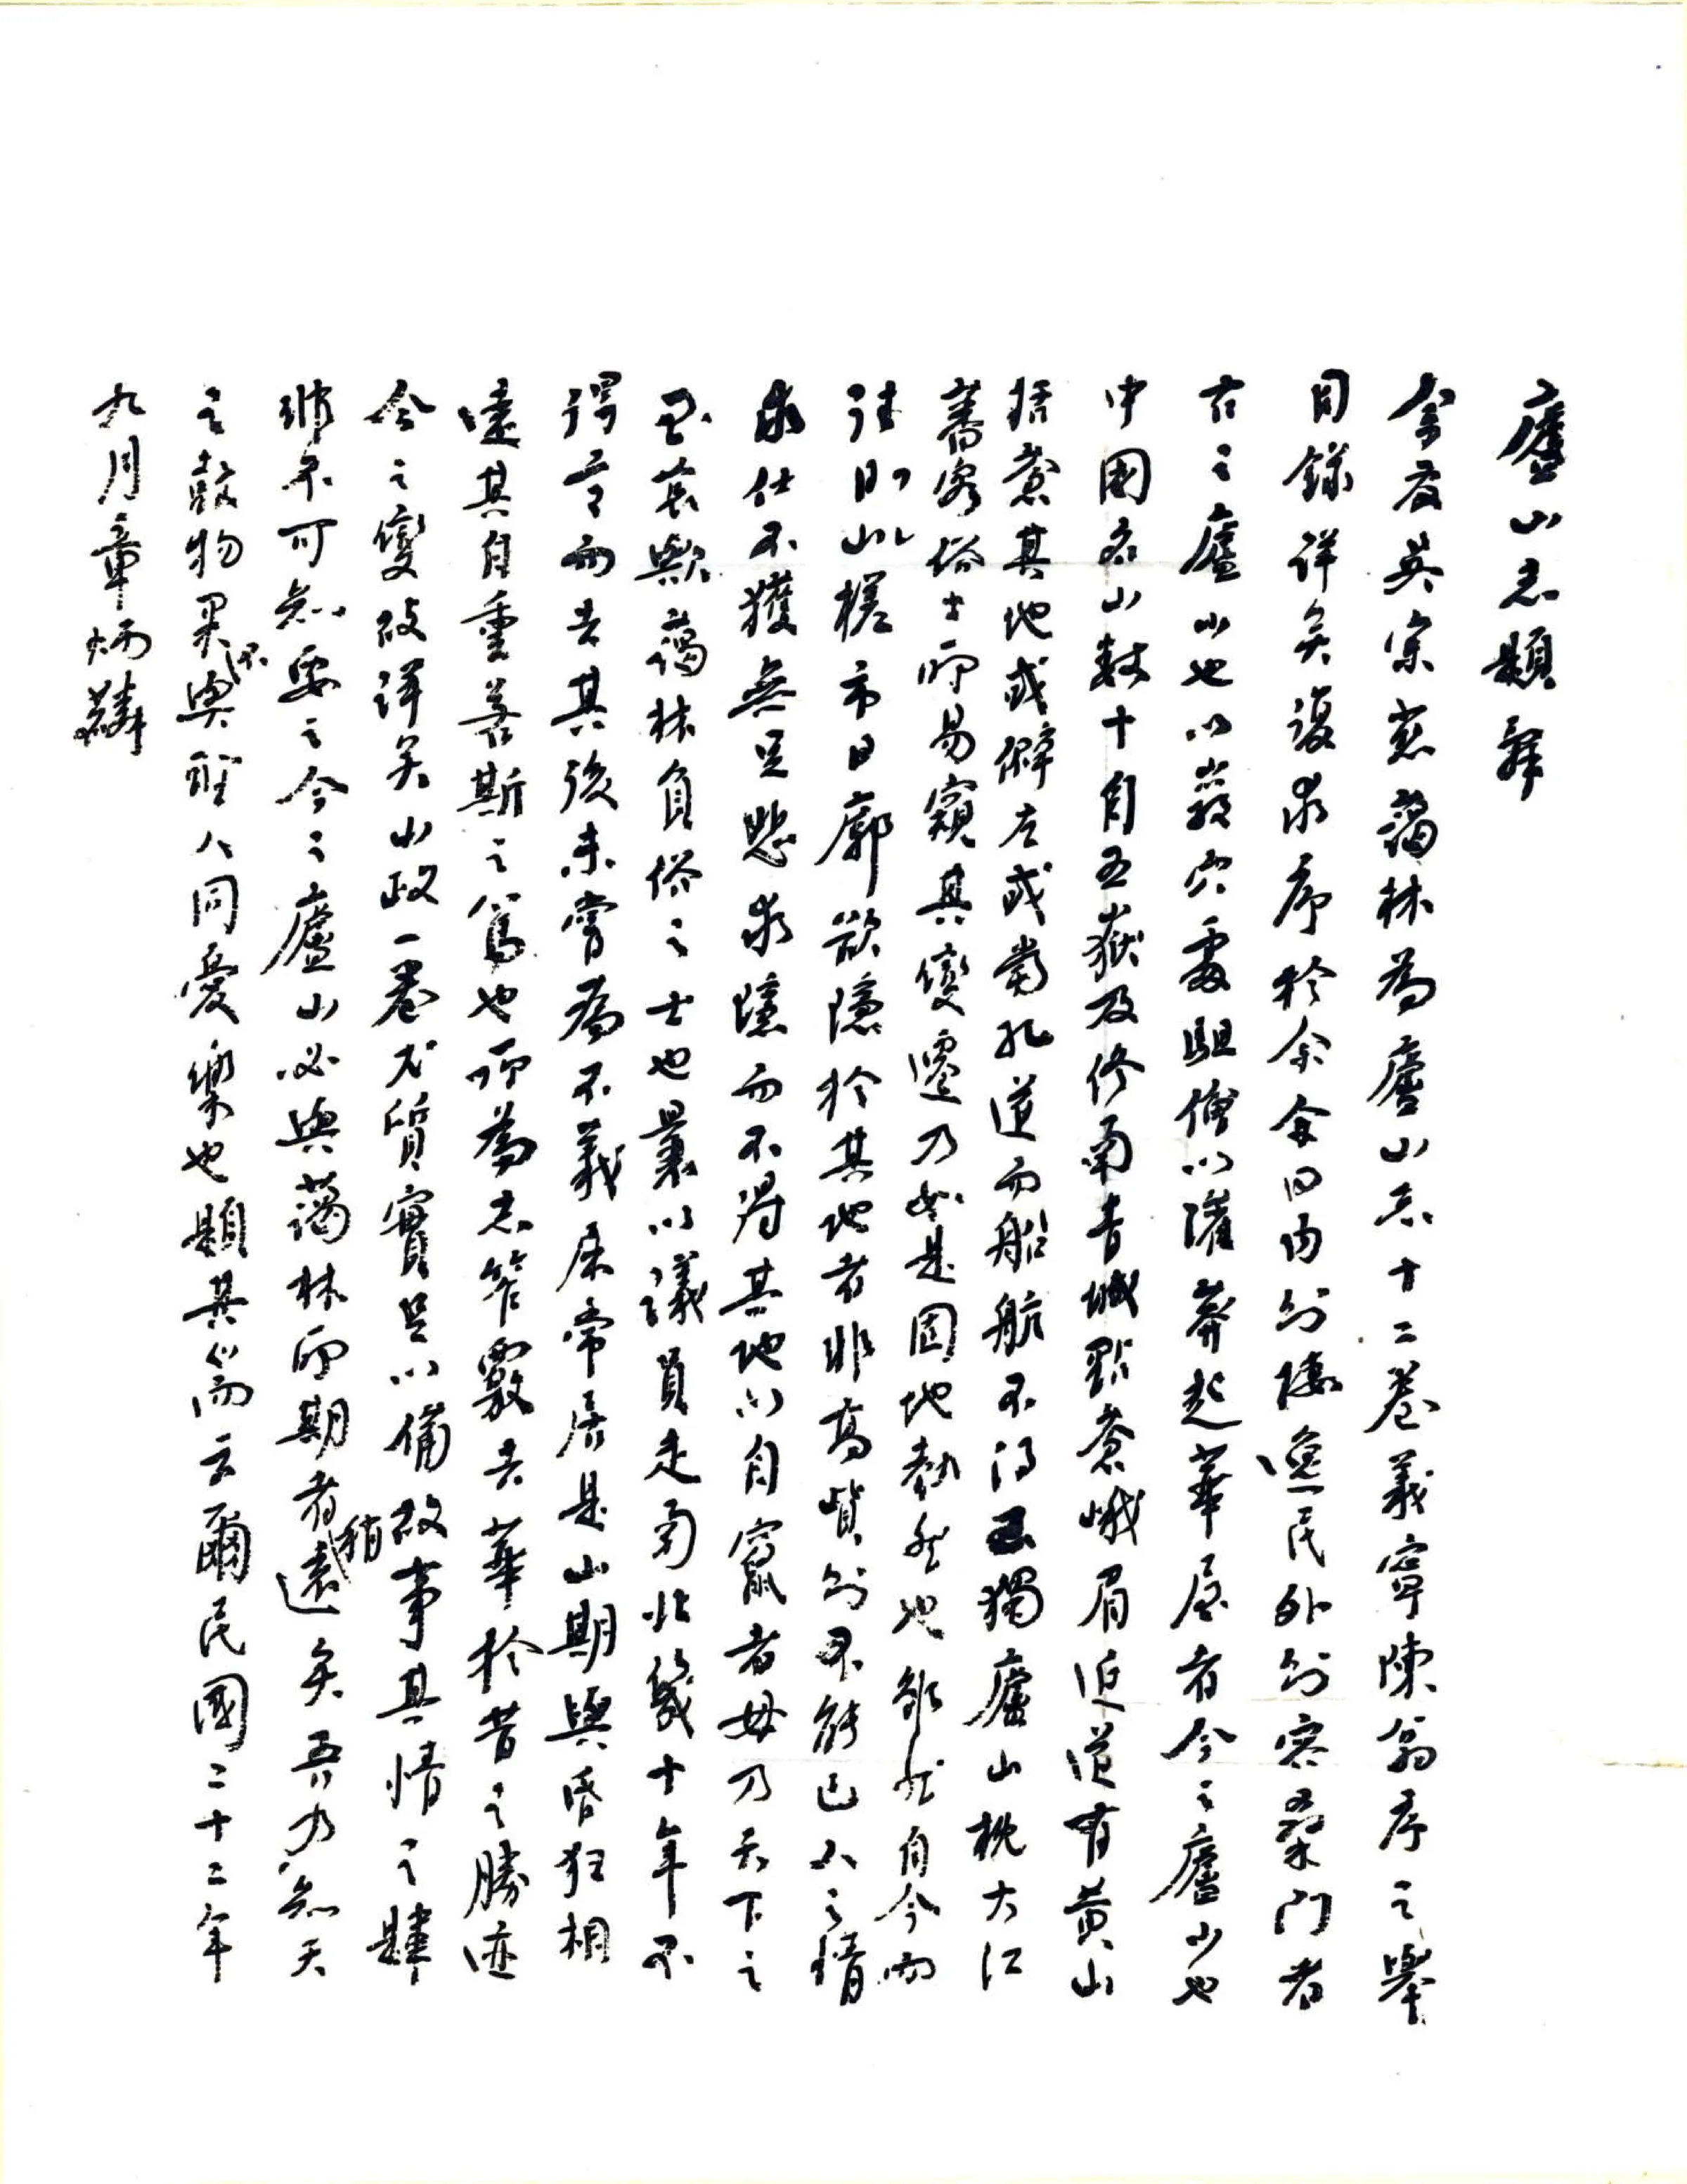 廬山志題辭
余友吳宗慈藹林為廬山志十二卷義寧陳翁序之舉
目錄詳矣復求序於余余曰內則棲逸民外則容桑門者
古之廬山也以巖穴處駔儈以灌莽起華屋者今之廬山也
中國名山數十自五嶽及終南青城點蒼峨眉近道有黃山
括蒼其地或僻左或當孔道而船航不得至獨廬山枕大江
蕃客俗士所易窺其變遷乃如是固地勢然也雖然自今而
往則山椎市日廓欲隱於其地者非高貲則不能已人之情
求仕不獲無足悲求隱而不得其地以自竄者毋乃天下之
至哀歟藹林負俗之士也曩以議員走南北幾十年不
得意而去其後未嘗為不義屈常居是山期與昏狂相
遠其自重若斯之篤也所為志筆覈去華於昔之勝迹
今之變故詳矣山政一卷尤質實足以備故事其情之肆
弛不可知要之今之廬山必與藹林所期者稍遠矣吾乃知天
之鼓物果不與聖人同憂樂也題其耑云爾民國二十二年
九月章炳麟